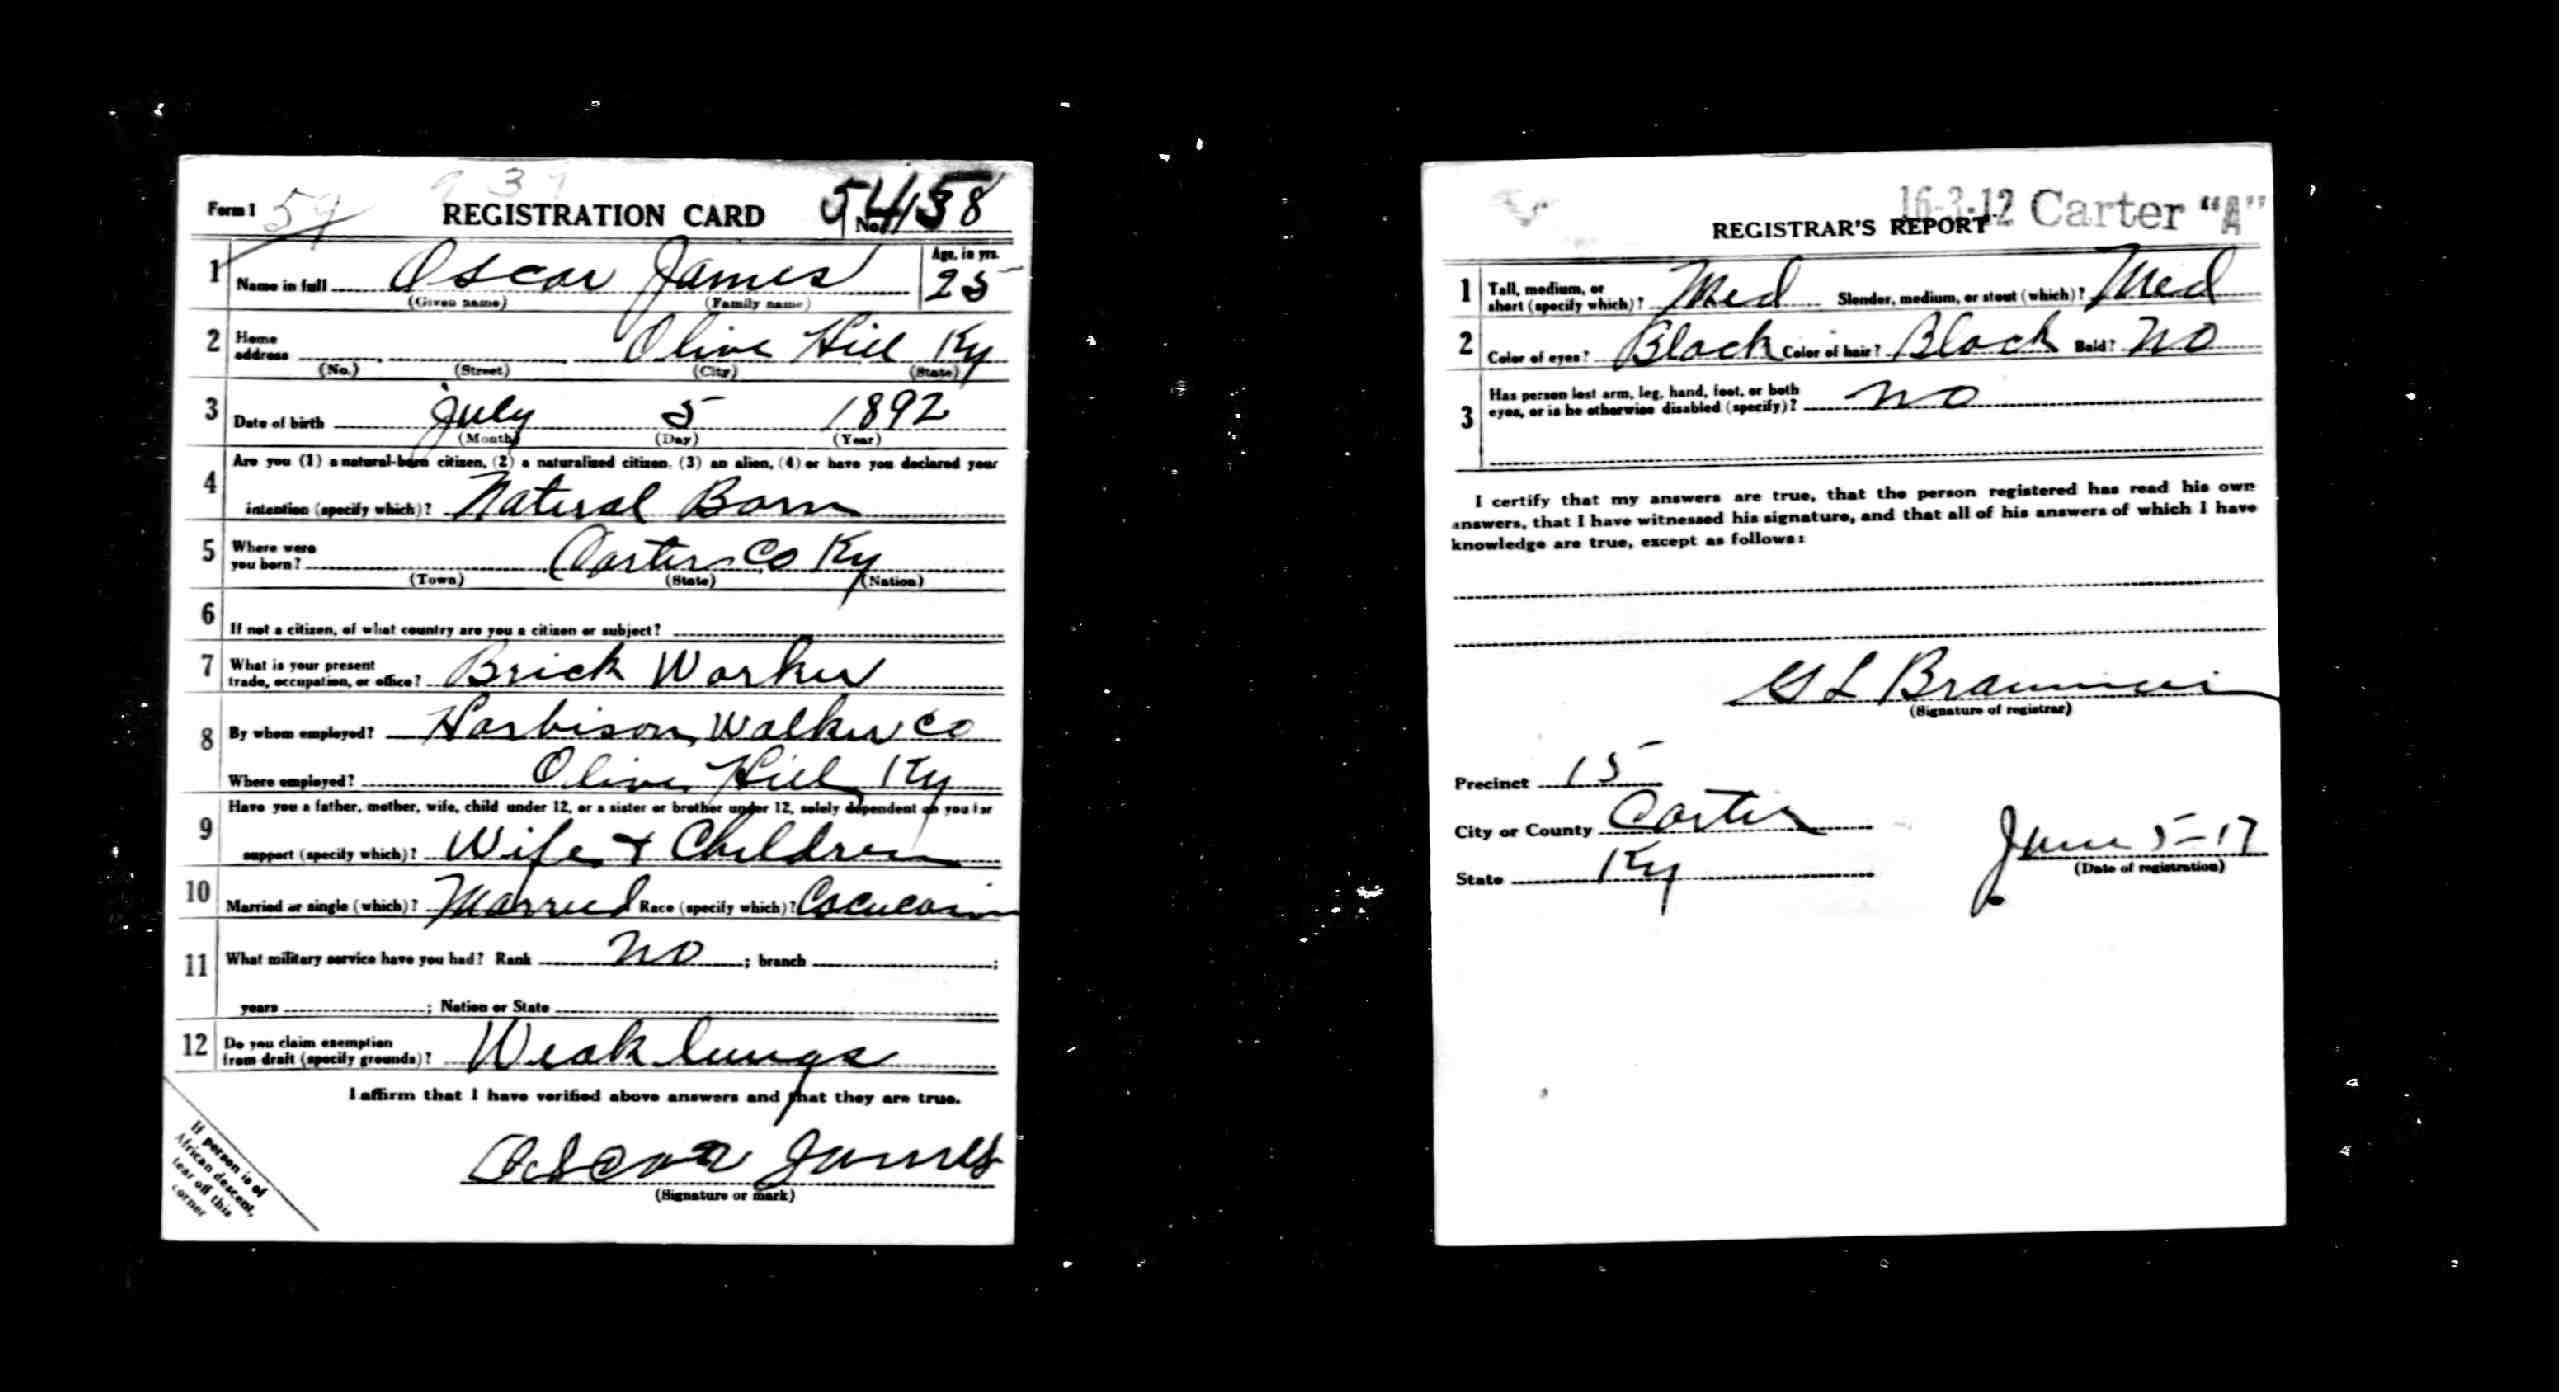 Form 1 59 REGISTRATION CARD No. 138
1 Name in full Oscar James Age, in yrs. 25
(Given name) (Family name)
2 Home address Olive Hill Ky
(No.) (Street) (City) (State)
3 Date of birth July 5 1892
(Month) (Day) (Year)
4 Are you (1) a natural-born citizen, (2) a naturalized citizen, (3) an alien, (4) or have you declared your
intention (specify which)? Natural Born
5 Where were you born? Carter Co Ky
(Town) (State) (Nation)
6 If not a citizen, of what country are you a citizen or subject?
7 What is your present trade, occupation, or office? Brick Worker
8 By whom employed? Harbison Walker Co
Where employed? Olive Hill Ky
9 Have you a father, mother, wife, child under 12, or a sister or brother under 12, solely dependent on you for
support (specify which)? Wife + Children
10 Married or single (which)? Married Race (specify which)?
11 What military service have you had? Rank no ; branch ;
years ; Nation or State
12 Do you claim exemption from draft (specify grounds)? Weak lungs
I affirm that I have verified above answers and that they are true.
Oscar James
(Signature or mark)
If person is of
African descent,
tear off this
corner
16-3-12 Carter "A"
REGISTRAR'S REPORT
1 Tall, medium, or short (specify which)? Med Slender, medium, or stout (which)? Med
2 Color of eyes? Black Color of hair? Black Bald? No
3 Has person lost arm, leg, hand, foot, or both
eyes, or is he otherwise disabled (specify)? no
I certify that my answers are true, that the person registered has read his own
answers, that I have witnessed his signature, and that all of his answers of which I have
knowledge are true, except as follows:
(Signature of registrar)
Precinct 15
City or County Carter
State Ky
June 5-17
(Date of registration)